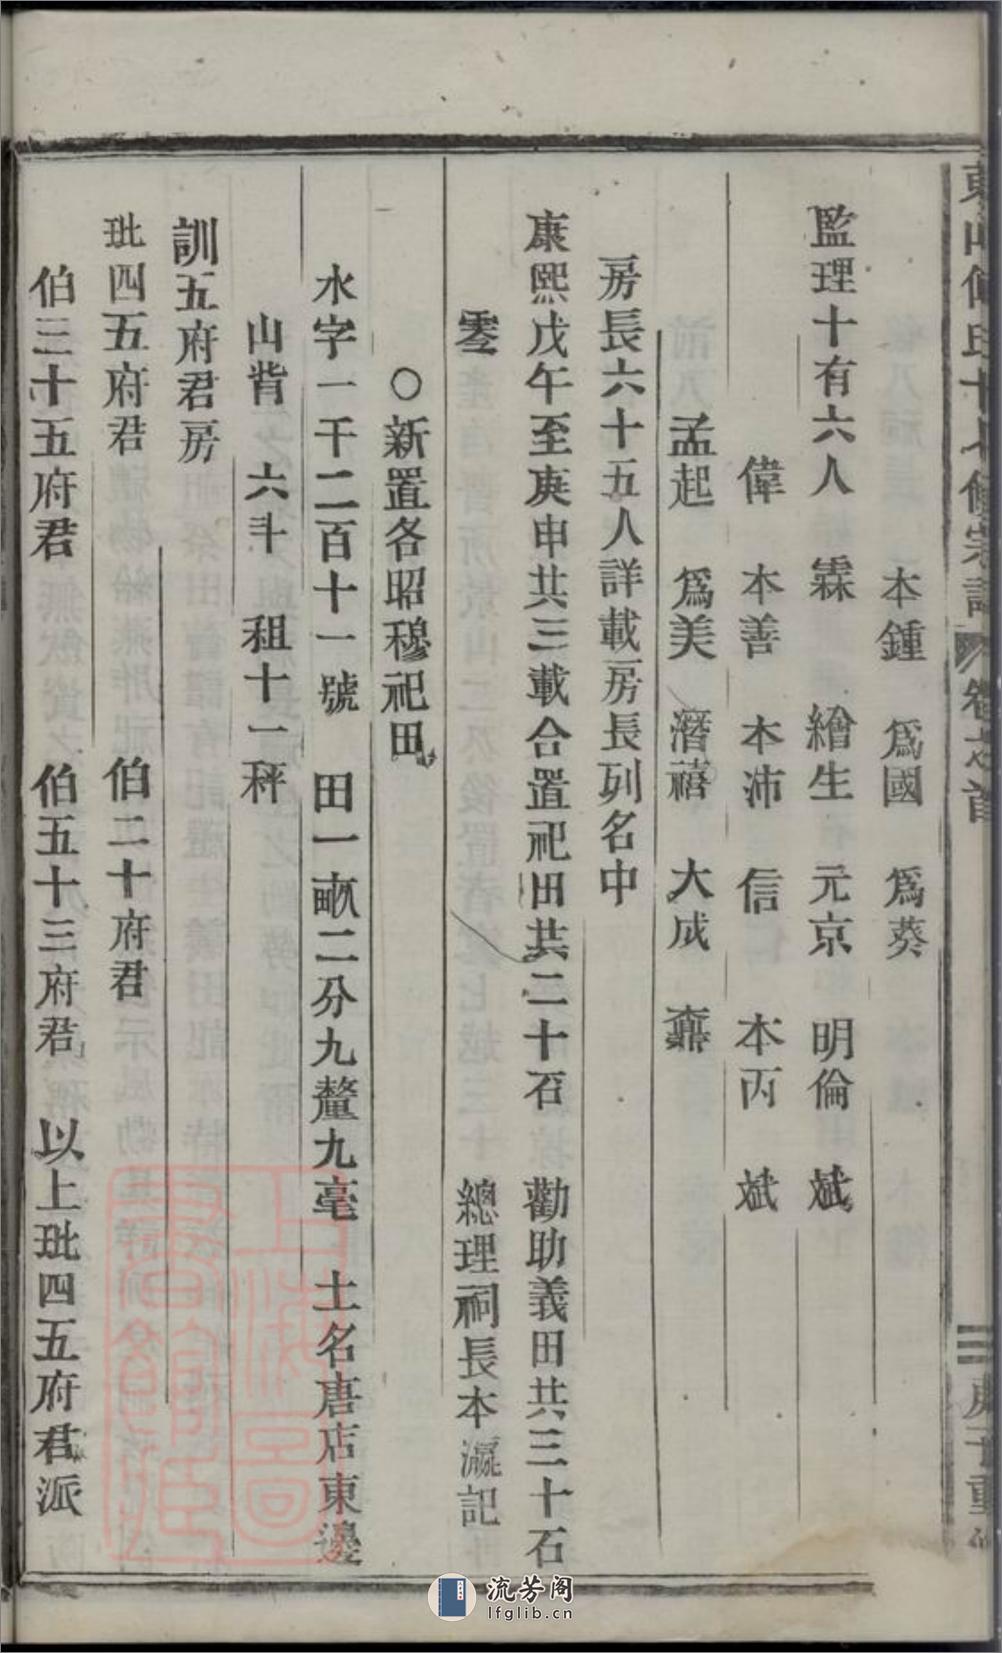 東山傅氏十七修宗譜 卷之首 三 庚子重修
本鍾 爲國 爲葵
監理十有六人 霖 繪生 元京 明倫 斌
偉 本善 本沛 信 本丙 斌
孟起 爲美 濳禧 大成 鼐
房長六十五人詳載房長列名中
康熙戊午至庚申共三載合置祀田共二十石 勸助義田共三十石
零 總理祠長本瀛記
○新置各昭穆祀田
水字一千二百十一號 田一畝二分九釐九毫 土名唐店東邊
山背 六斗 租十一秤
訓五府君房
玭四五府君 伯二十府君
伯三十五府君 伯五十三府君 以上玭四五府君派
上海圖書館藏
流芳阁
lfglib.cn